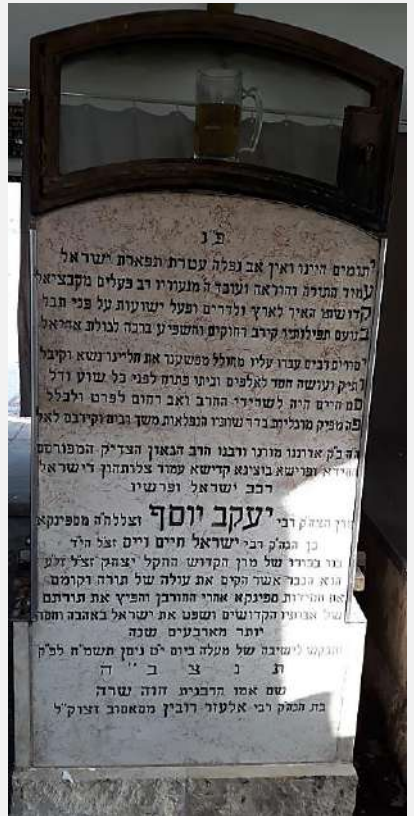 פ נ
יתומים היינו ואין אב נפלה עטרת תפארת ישראל
עמוד התורה והוראה ועובד ה' מנעוריו רב פעלים מקבציאל
קדושתו האיר לארץ ולדרים ופעל ישועות על פני תבל
בנועם תפילותיו קירב רחוקים והשפיע ברכה לגולת אריאל
יסורים רבים עברו עליו מחולל מפשענו את חליינו נשא וקיבל
ותיק ועושה חסד לאלפים וביתו פתוח לפני כל שוע ודל
סם חיים היה לשרידי החרב ואב רחום לפרט ולכלל
פה מפיק מרגליות בדרשותיו הנפלאות משך רבים וקירבם לאל
ה"ה כ"ק אדונינו מורנו ורבנו הרב הגאון הצדיק המפורסם
חסידא ופרישא בוצינא קדישא עמוד צלותהון דישראל
רכב ישראל ופרשיו
מרן הגה"ק רבי יעקב יוסף זצללה"ה מספינקא
בן הגה"ק רבי ישראל חיים ווייס זצ"ל הי"ד
בנו בכורו של מרן הקדוש החקל יצחק זצ"ל זי"ע
הוא הגבר אשר הקים את עולה של תורה וקומם
את חסידות ספינקא אחרי החורבן והפיץ את תורתם
של אבותיו הקדושים ושפט את ישראל באהבה וחסד
יותר מארבעים שנה
ונתבקש לישיבה של מעלה ביום י"ט ניסן תשמ"ח לפ"ק
ת נ צ ב " ה
שם אמו הרבנית חוה שרה
בת הגה"ק רבי אלעזר רובין מסאסוב זצוק"ל